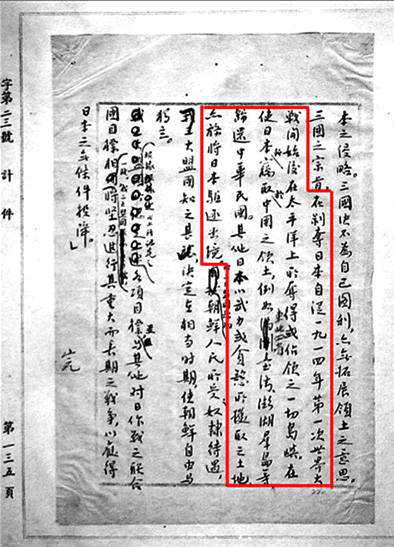 本之侵略。三國決不為自己圖利,亦無拓展領土之意思。
三國之宗旨,在剝奪日本自從一九一四年第一次世界大
戰開始後在太平洋上所奪得或佔領之一切島嶼,在
使日本竊取中國之領土,例如臺灣澎湖羣島等
歸還中華民國。其他日本以武力或貪慾所攫取之土地
亦務將日本驅逐出境朝鮮人民所受奴隸待遇,
大盟國知之甚稔決定在相當時期使朝鮮自由與
獨立。
各項目標與其他對日作戰之聯合
國目標相同將堅忍進行其重大而長期之戰爭,以獲得
日本之無條件投降。」
完
字第二三號 計 件 第一三五頁